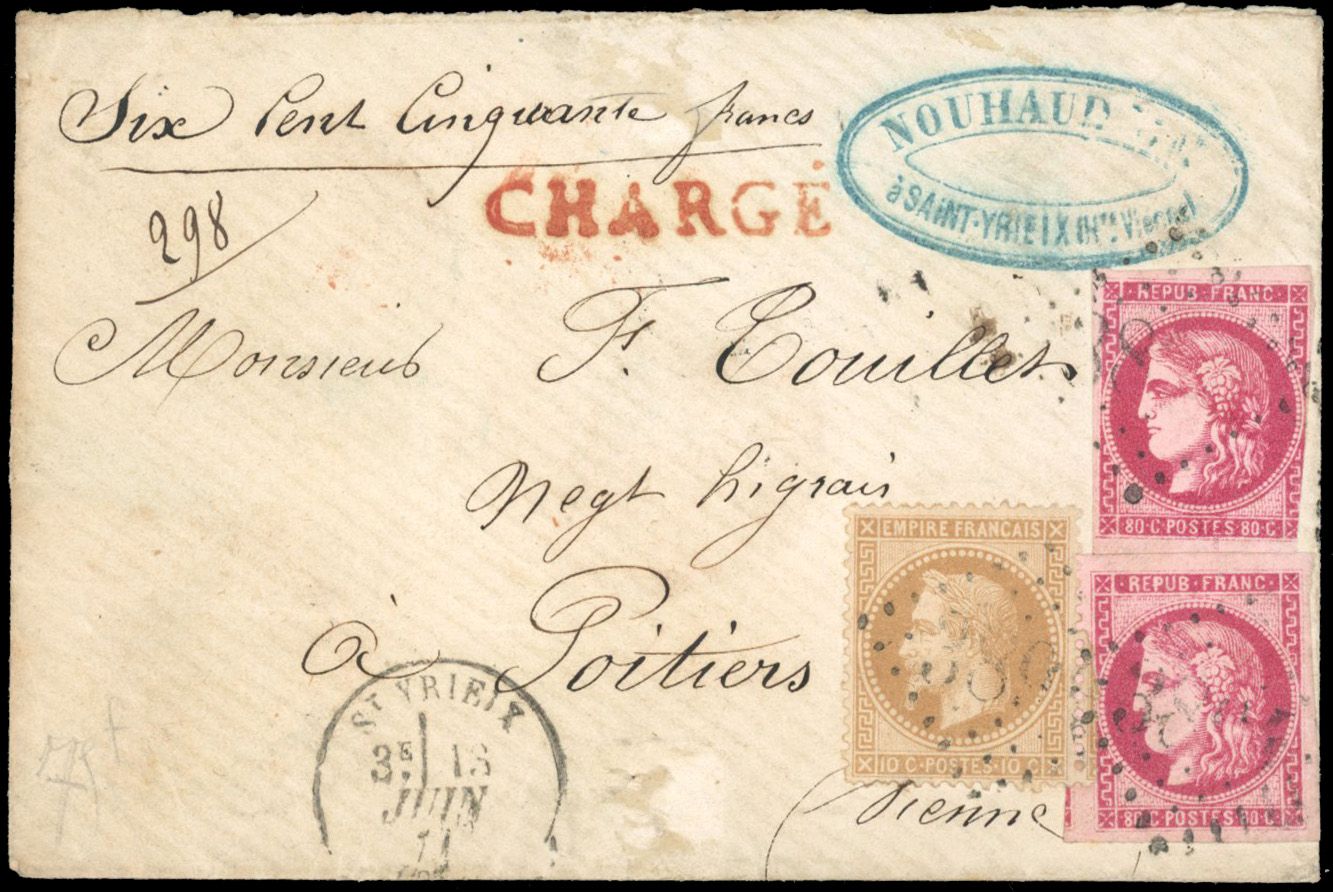 Six Cent Cinquante francs
298
CHARGÉ
NOUHAUD
à SAINT-YRIEIX (Hte. Vienne)
Monsieur F. Touillet
Negt
à Poitiers
Vienne
REPUB·FRANC·
80·C·POSTES·80·C
EMPIRE FRANCAIS
10 C·POSTES·10 C
REPUB·FRANC·
80·C·POSTES·80·C
ST YRIEIX
3E 13
JUIN
71